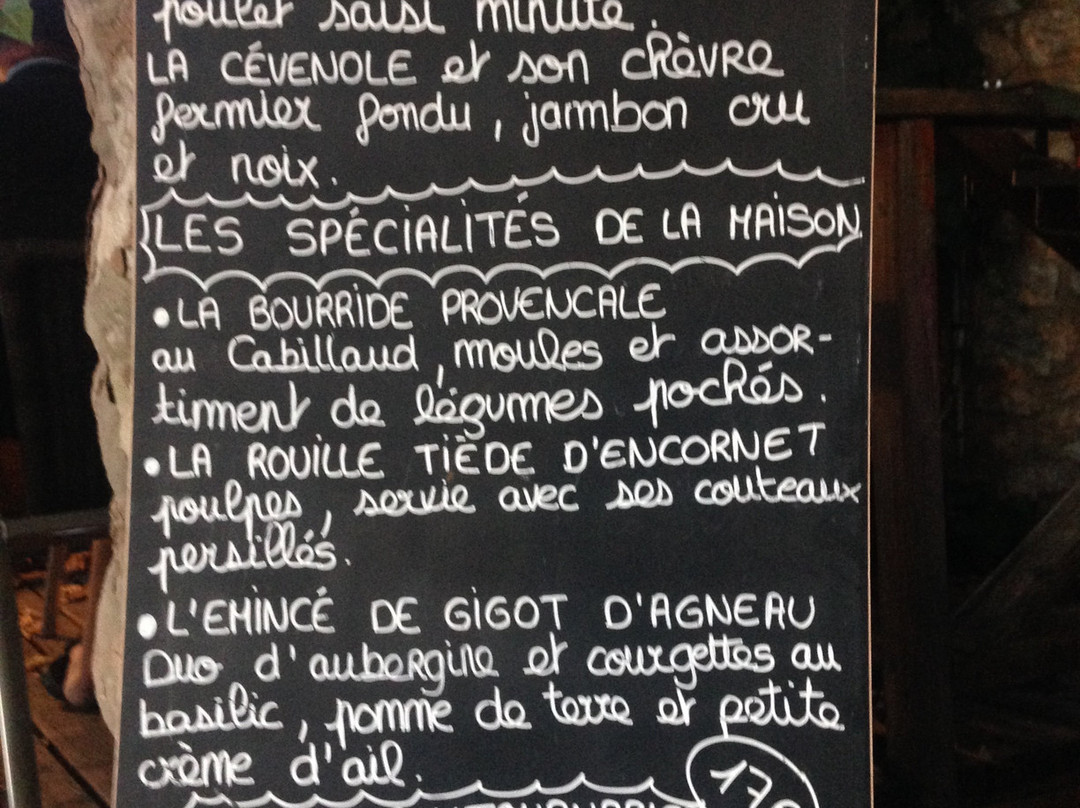 poulet saisi minute.
LA CÉVENOLE et son chèvre
fermier fondu, jambon cru
et noix.
LES SPÉCIALITÉS DE LA MAISON
• LA BOURRIDE PROVENCALE
au Cabillaud, moules et assor-
timent de légumes pochés.
• LA ROUILLE TIÈDE D'ENCORNET
poulpes, servie avec ses couteaux
persillés.
• L'EMINCÉ DE GIGOT D'AGNEAU
Duo d'aubergine et courgettes au
basilic, pomme de terre et petite
crème d'ail.
17